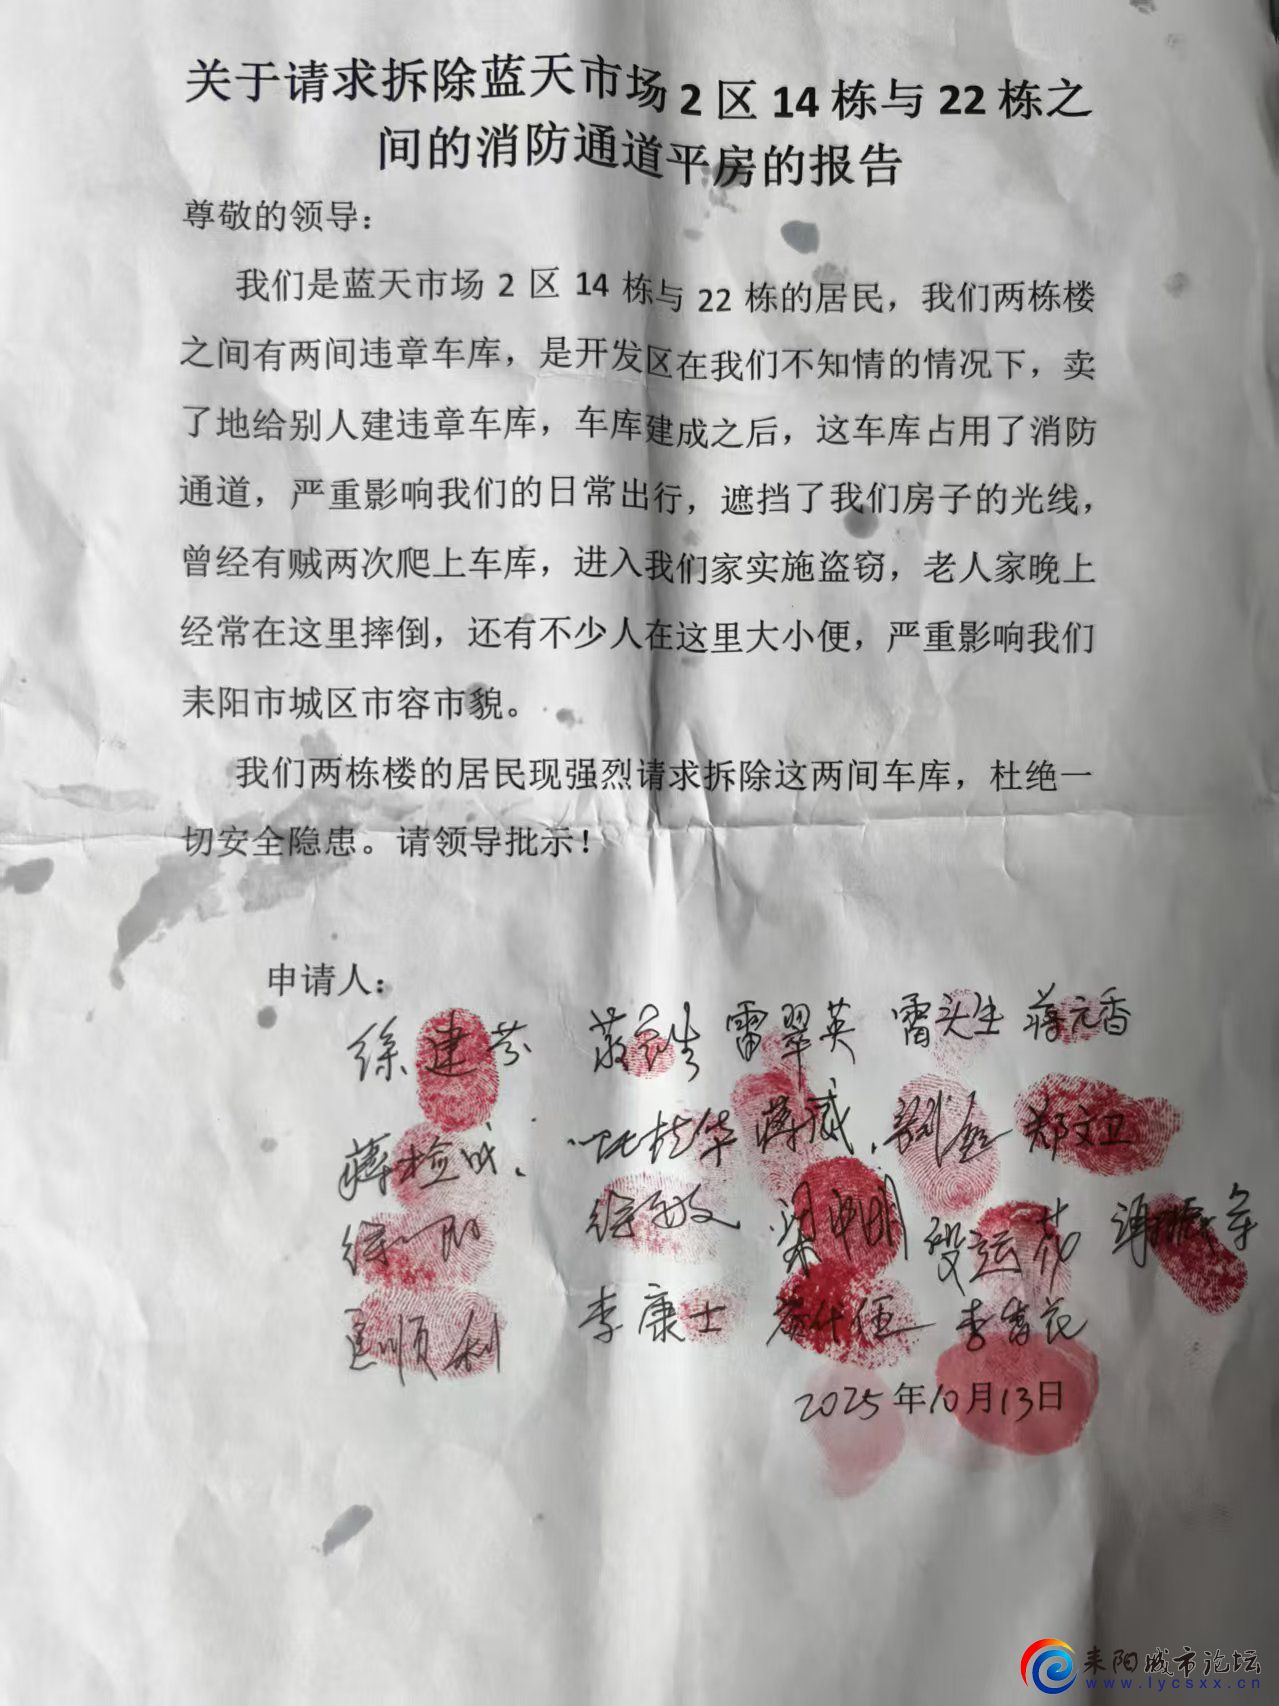 关于请求拆除蓝天市场2区14栋与22栋之
间的消防通道平房的报告
尊敬的领导：
我们是蓝天市场2区14栋与22栋的居民，我们两栋楼
之间有两间违章车库，是开发区在我们不知情的情况下，卖
了地给别人建违章车库，车库建成之后，这车库占用了消防
通道，严重影响我们的日常出行，遮挡了我们房子的光线，
曾经有贼两次爬上车库，进入我们家实施盗窃，老人家晚上
经常在这里摔倒，还有不少人在这里大小便，严重影响我们
耒阳市城区市容市貌。
我们两栋楼的居民现强烈请求拆除这两间车库，杜绝一
切安全隐患。请领导批示！
申请人：
徐建芬 雷翠英 雷头生 蒋元香
蒋检成 蒋威 郑文卫
徐敏 段运花
匡顺利 李康士 李香花
2025年10月13日
耒阳城市论坛
www.lycsxx.cn